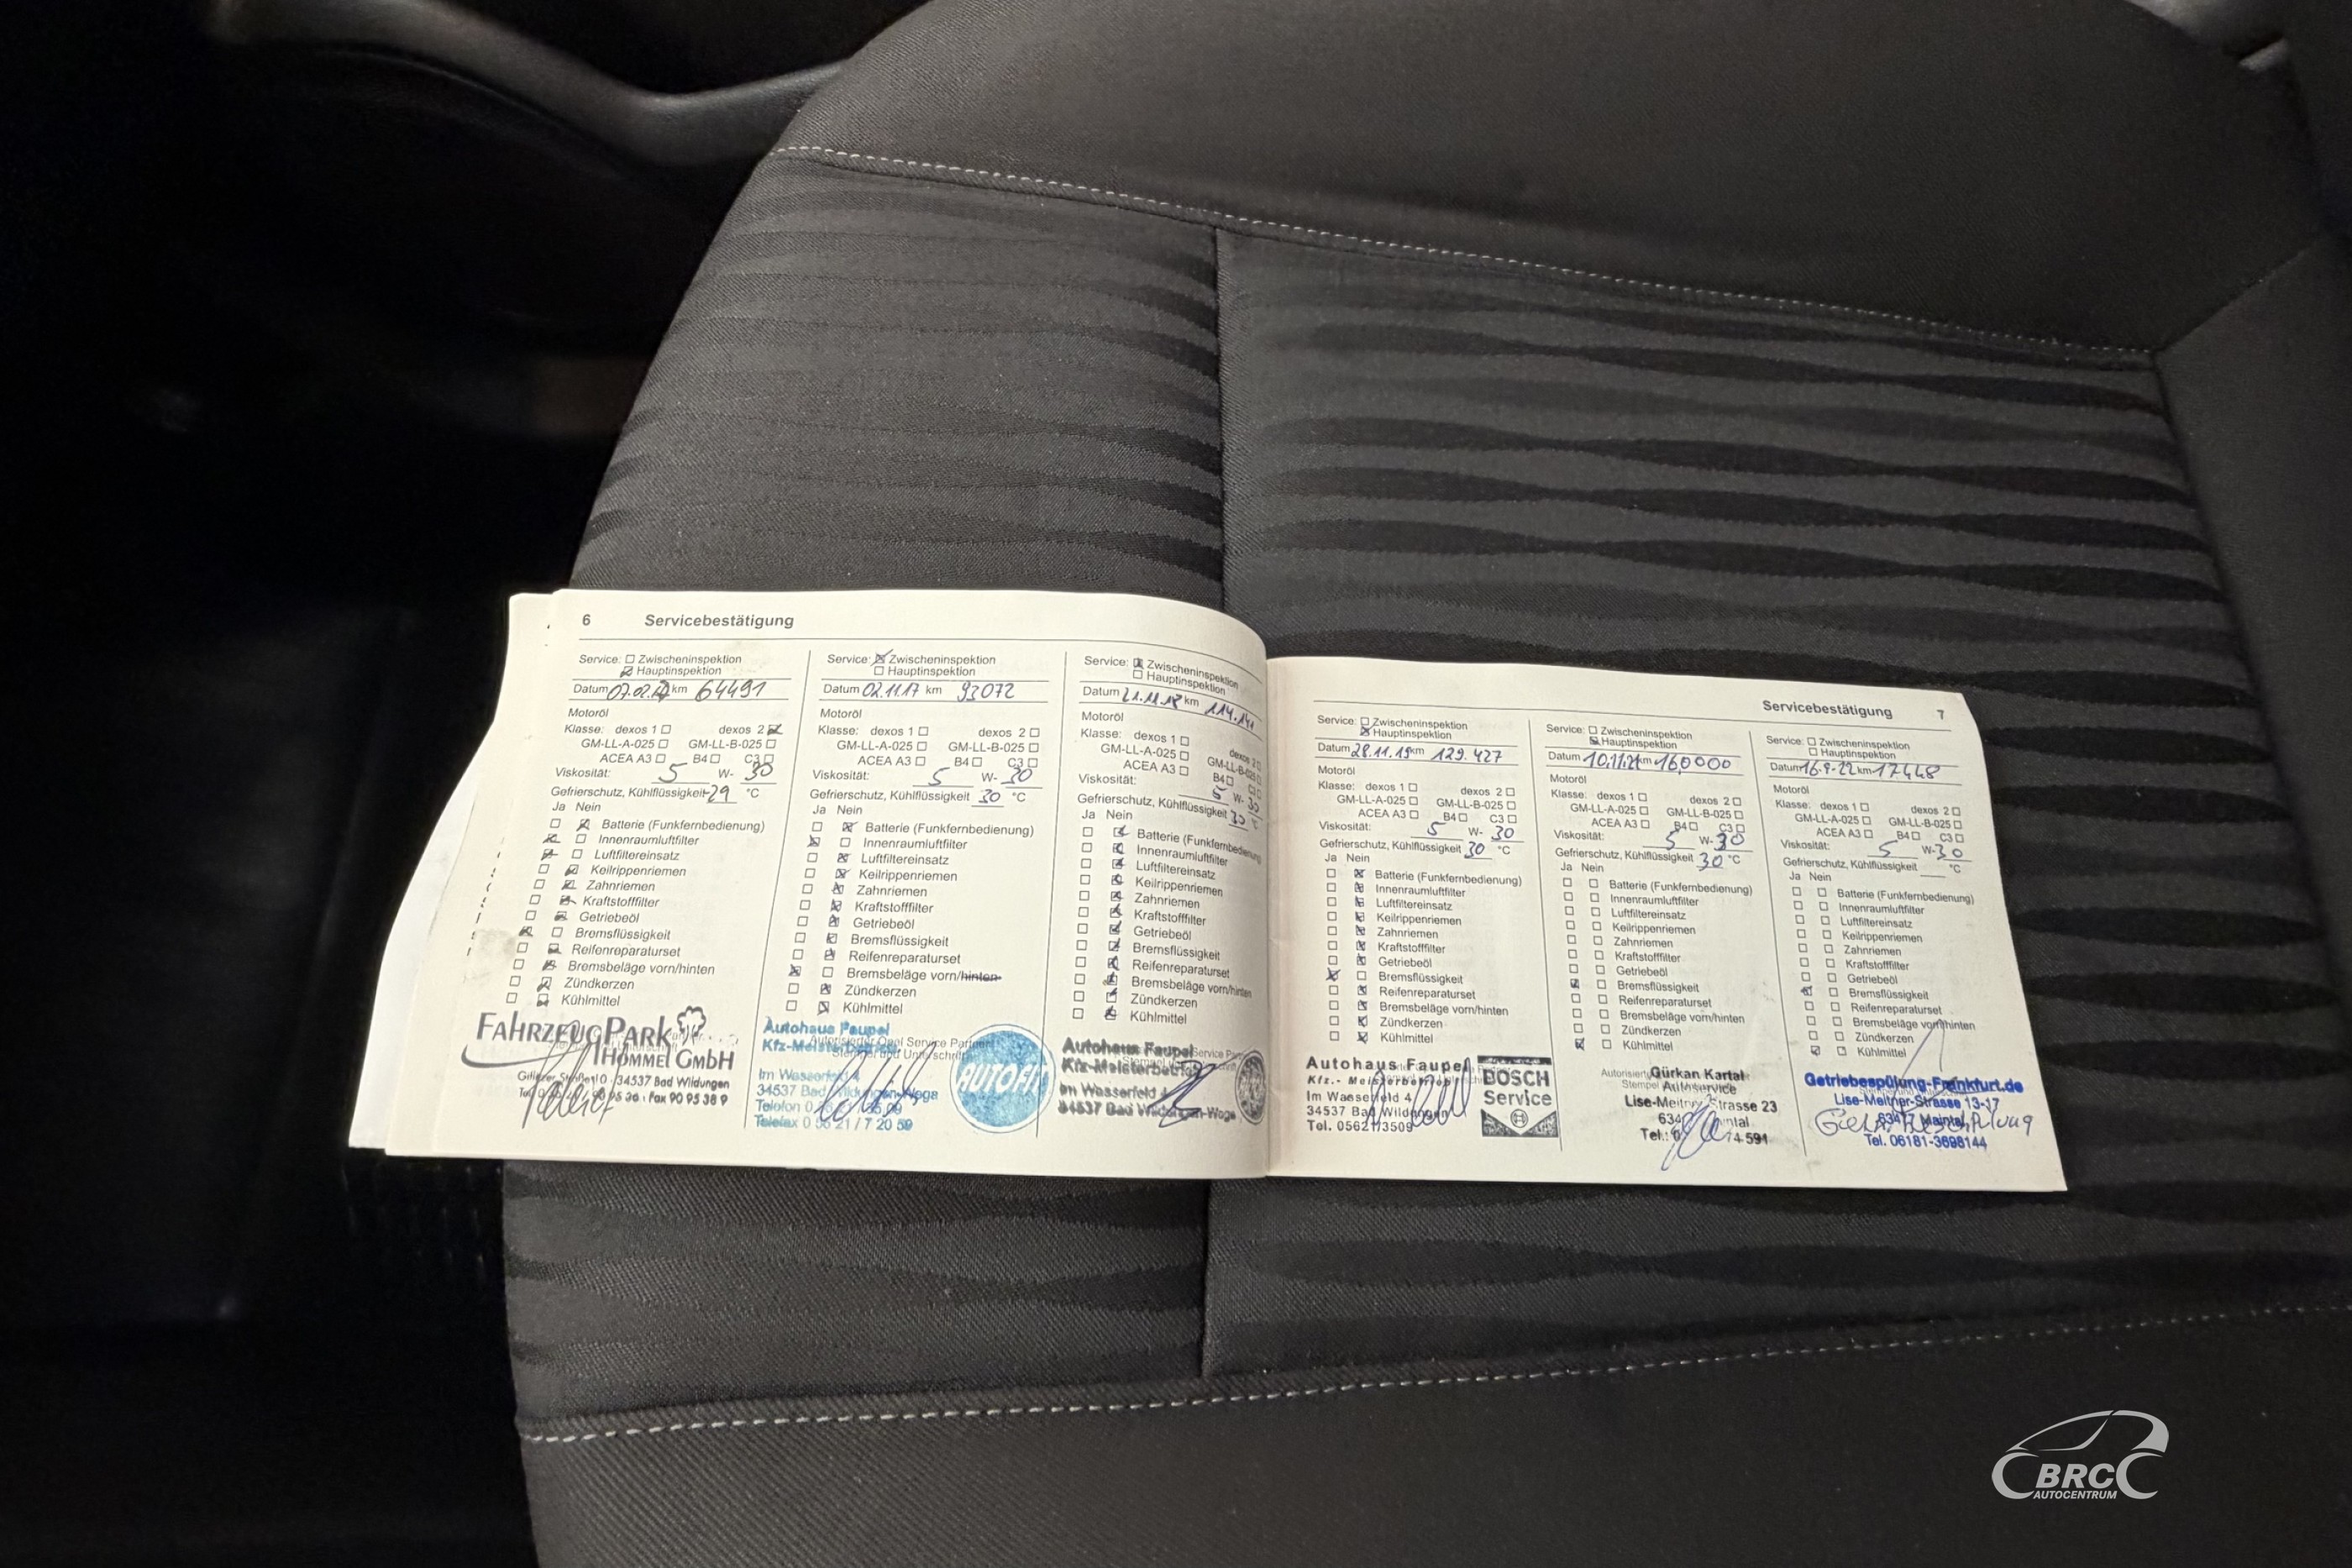 6 Servicebestätigung
Service: ☐ Zwischeninspektion
☒ Hauptinspektion
Datum 07.02.17 km 64491
Motoröl
Klasse: dexos 1 ☐ dexos 2 ☒
GM-LL-A-025 ☐ GM-LL-B-025 ☐
ACEA A3 ☐ B4 ☐ C3 ☐
Viskosität: 5 W- 30
Gefrierschutz, Kühlflüssigkeit -29 °C
Ja Nein
☐ ☒ Batterie (Funkfernbedienung)
☒ ☐ Innenraumluftfilter
☒ ☐ Luftfiltereinsatz
☐ ☒ Keilrippenriemen
☐ ☒ Zahnriemen
☐ ☒ Kraftstofffilter
☐ ☒ Getriebeöl
☒ ☐ Bremsflüssigkeit
☐ ☒ Reifenreparaturset
☐ ☒ Bremsbeläge vorn/hinten
☐ ☒ Zündkerzen
☐ ☒ Kühlmittel
FAHRZEUGPARK
HOMMEL GMBH
34537 Bad Wildungen
Fax 90 95 38 9
Service: ☒ Zwischeninspektion
☐ Hauptinspektion
Datum 02.11.17 km 93072
Motoröl
Klasse: dexos 1 ☐ dexos 2 ☐
GM-LL-A-025 ☐ GM-LL-B-025 ☐
ACEA A3 ☐ B4 ☐ C3 ☐
Viskosität: 5 W- 30
Gefrierschutz, Kühlflüssigkeit 30 °C
Ja Nein
☐ ☒ Batterie (Funkfernbedienung)
☒ ☐ Innenraumluftfilter
☐ ☒ Luftfiltereinsatz
☐ ☒ Keilrippenriemen
☐ ☒ Zahnriemen
☐ ☒ Kraftstofffilter
☐ ☒ Getriebeöl
☐ ☒ Bremsflüssigkeit
☐ ☒ Reifenreparaturset
☒ ☐ Bremsbeläge vorn/hinten
☐ ☒ Zündkerzen
☐ ☒ Kühlmittel
Autohaus Faupel
Kfz-Meisterbetrieb
Autorisierter Opel Service Partner
Stempel und Unterschrift
Im Wasserfeld 4
34537 Bad Wildungen-Wega
Telefon
Telefax 0 56 21 / 7 20 59
AUTOFIT
Service: ☒ Zwischeninspektion
☐ Hauptinspektion
Datum 21.11.18 km 114.141
Motoröl
Klasse: dexos 1 ☐ dexos 2 ☐
GM-LL-A-025 ☐ GM-LL-B-025 ☐
ACEA A3 ☐ B4 ☐ C3 ☐
Viskosität: 5 W- 30
Gefrierschutz, Kühlflüssigkeit 30 °C
Ja Nein
☐ ☒ Batterie (Funkfernbedienung)
☐ ☒ Innenraumluftfilter
☐ ☒ Luftfiltereinsatz
☐ ☒ Keilrippenriemen
☐ ☒ Zahnriemen
☐ ☒ Kraftstofffilter
☐ ☒ Getriebeöl
☐ ☒ Bremsflüssigkeit
☐ ☒ Reifenreparaturset
☐ ☒ Bremsbeläge vorn/hinten
☐ ☒ Zündkerzen
☐ ☒ Kühlmittel
Autohaus Faupel
Kfz-Meisterbetrieb
Im Wasserfeld 4
34537 Bad Wildungen-Wega
Servicebestätigung 7
Service: ☐ Zwischeninspektion
☒ Hauptinspektion
Datum 28.11.19 km 129.427
Motoröl
Klasse: dexos 1 ☐ dexos 2 ☐
GM-LL-A-025 ☐ GM-LL-B-025 ☐
ACEA A3 ☐ B4 ☐ C3 ☐
Viskosität: 5 W- 30
Gefrierschutz, Kühlflüssigkeit 30 °C
Ja Nein
☐ ☒ Batterie (Funkfernbedienung)
☐ ☒ Innenraumluftfilter
☐ ☒ Luftfiltereinsatz
☐ ☒ Keilrippenriemen
☐ ☒ Zahnriemen
☐ ☒ Kraftstofffilter
☐ ☒ Getriebeöl
☒ ☐ Bremsflüssigkeit
☐ ☒ Reifenreparaturset
☐ ☒ Bremsbeläge vorn/hinten
☐ ☒ Zündkerzen
☐ ☒ Kühlmittel
Autohaus Faupel
Kfz.- Meisterbetrieb
Im Wasserfeld 4
34537 Bad Wildungen
Tel. 05621/3509
BOSCH
Service
Service: ☐ Zwischeninspektion
☒ Hauptinspektion
Datum 10.11.21 km 160000
Motoröl
Klasse: dexos 1 ☐ dexos 2 ☐
GM-LL-A-025 ☐ GM-LL-B-025 ☐
ACEA A3 ☐ B4 ☐ C3 ☐
Viskosität: 5 W- 30
Gefrierschutz, Kühlflüssigkeit 30 °C
Ja Nein
☐ ☐ Batterie (Funkfernbedienung)
☐ ☐ Innenraumluftfilter
☐ ☐ Luftfiltereinsatz
☐ ☐ Keilrippenriemen
☐ ☐ Zahnriemen
☐ ☐ Kraftstofffilter
☐ ☐ Getriebeöl
☒ ☐ Bremsflüssigkeit
☐ ☐ Reifenreparaturset
☐ ☐ Bremsbeläge vorn/hinten
☐ ☐ Zündkerzen
☒ ☐ Kühlmittel
Gürkan Kartal
Autoservice
Lise-Meitner Strasse 23
Tel.: 74 591
Service: ☐ Zwischeninspektion
☐ Hauptinspektion
Datum 16.9.22 km 17448
Motoröl
Klasse: dexos 1 ☐ dexos 2 ☐
GM-LL-A-025 ☐ GM-LL-B-025 ☐
ACEA A3 ☐ B4 ☐ C3 ☐
Viskosität: 5 W- 30
Gefrierschutz, Kühlflüssigkeit °C
Ja Nein
☐ ☐ Batterie (Funkfernbedienung)
☐ ☐ Innenraumluftfilter
☐ ☐ Luftfiltereinsatz
☐ ☐ Keilrippenriemen
☐ ☐ Zahnriemen
☐ ☐ Kraftstofffilter
☐ ☐ Getriebeöl
☒ ☐ Bremsflüssigkeit
☐ ☐ Reifenreparaturset
☐ ☐ Bremsbeläge vorn/hinten
☐ ☐ Zündkerzen
☒ ☐ Kühlmittel
Getriebespülung-Frankfurt.de
Lise-Meitner-Strasse 13-17
63477 Maintal
Tel. 06181-3698144
BRC
AUTOCENTRUM